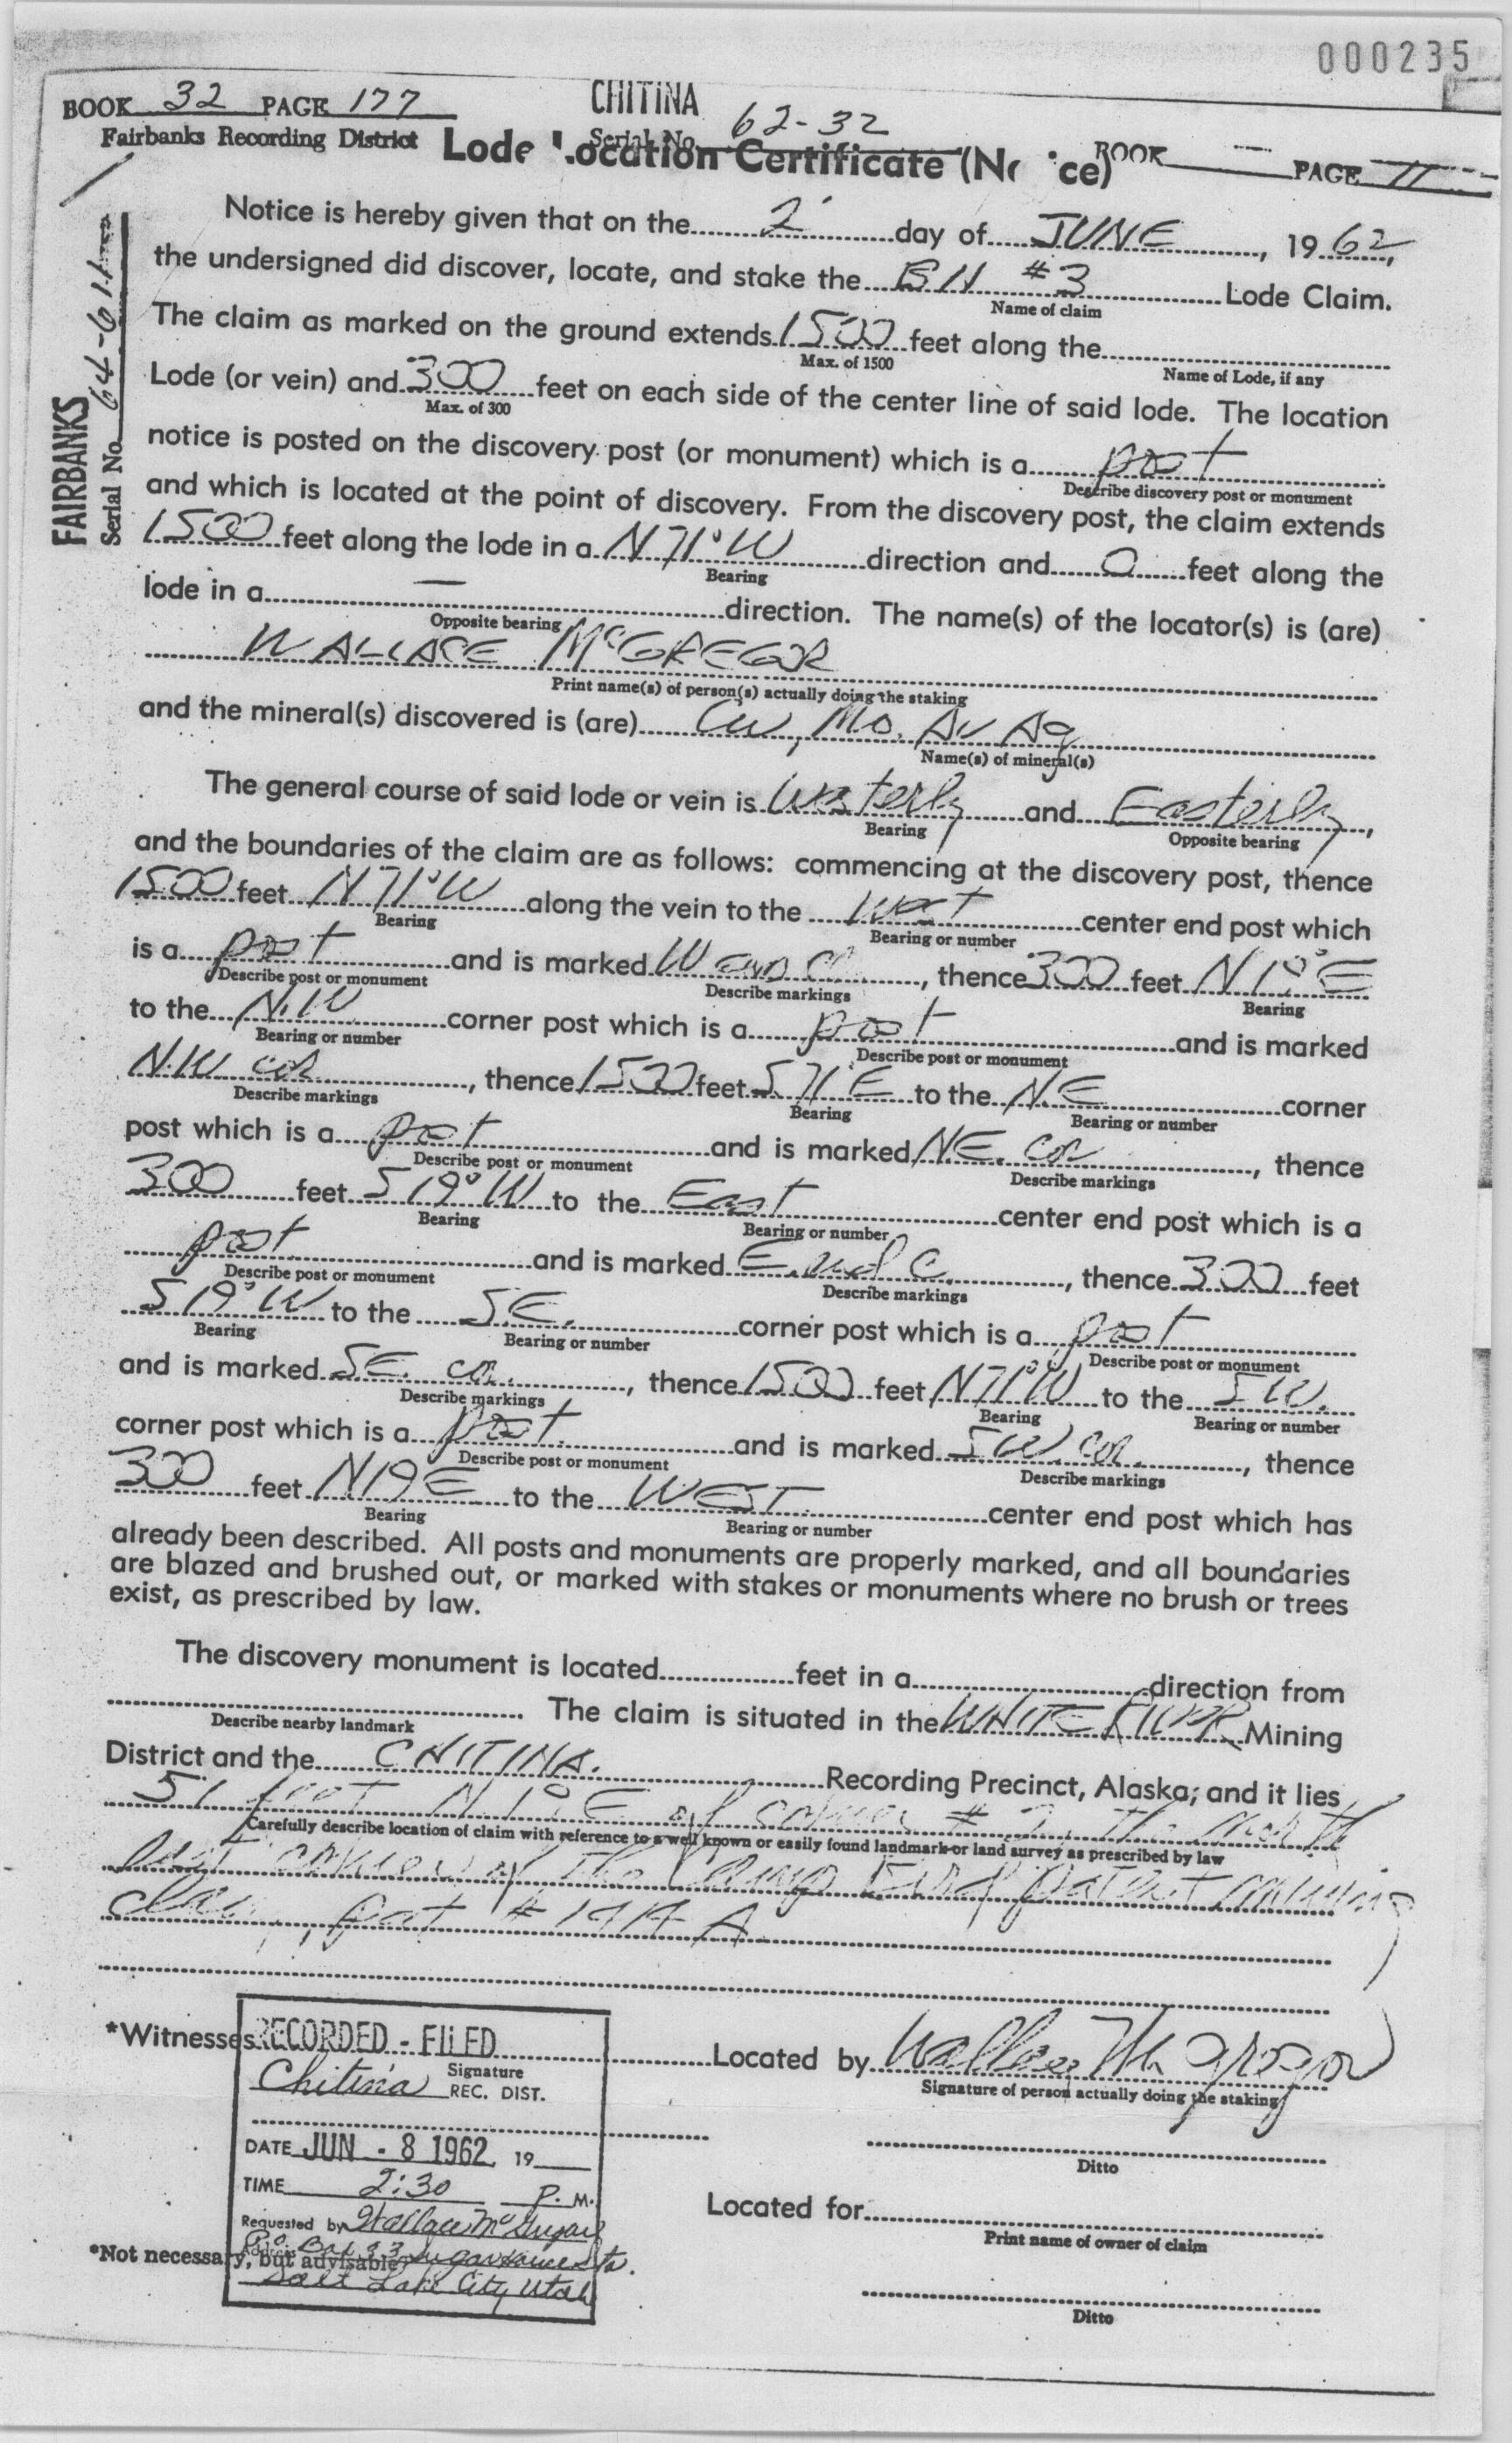 000235
BOOK 32 PAGE 177
CHITINA
Serial No. 62-32
Fairbanks Recording District
Lode Location Certificate (No ce)
BOOK PAGE 11
FAIRBANKS
Serial No. 64-611
Notice is hereby given that on the 2 day of JUNE, 1962,
the undersigned did discover, locate, and stake the BH #3 Lode Claim.
Name of claim
The claim as marked on the ground extends 1500 feet along the
Max. of 1500 Name of Lode, if any
Lode (or vein) and 300 feet on each side of the center line of said lode. The location
Max. of 300
notice is posted on the discovery post (or monument) which is a post
Describe discovery post or monument
and which is located at the point of discovery. From the discovery post, the claim extends
1500 feet along the lode in a N 71° W direction and 0 feet along the
Bearing
lode in a — direction. The name(s) of the locator(s) is (are)
Opposite bearing
WALLACE McGREGOR
Print name(s) of person(s) actually doing the staking
and the mineral(s) discovered is (are) Cu, Mo, Au Ag
Name(s) of mineral(s)
The general course of said lode or vein is Westerly and Easterly,
Bearing Opposite bearing
and the boundaries of the claim are as follows: commencing at the discovery post, thence
1500 feet N 71° W along the vein to the West center end post which
Bearing Bearing or number
is a post and is marked W end C, thence 300 feet N 19° E
Describe post or monument Describe markings Bearing
to the N.W corner post which is a post and is marked
Bearing or number Describe post or monument
N.W cor, thence 1500 feet S 71 E to the N.E corner
Describe markings Bearing Bearing or number
post which is a post and is marked N.E. cor, thence
Describe post or monument Describe markings
300 feet S 19° W to the East center end post which is a
Bearing Bearing or number
post and is marked E. end C., thence 300 feet
Describe post or monument Describe markings
S 19° W to the S.E. corner post which is a post
Bearing Bearing or number Describe post or monument
and is marked S.E. cor., thence 1500 feet N 71° W to the S W.
Describe markings Bearing Bearing or number
corner post which is a post. and is marked S.W. cor., thence
Describe post or monument Describe markings
300 feet N 19 E to the WEST center end post which has
Bearing Bearing or number
already been described. All posts and monuments are properly marked, and all boundaries
are blazed and brushed out, or marked with stakes or monuments where no brush or trees
exist, as prescribed by law.
The discovery monument is located feet in a direction from
. The claim is situated in the WHITE RIVER Mining
Describe nearby landmark
District and the CHITINA. Recording Precinct, Alaska; and it lies
51 feet N. 19 E of corner # 2, the north
Carefully describe location of claim with reference to a well known or easily found landmark or land survey as prescribed by law
east corner of the Camp Bird patent mining
claim, pat # A
*Witnesses Located by Wallace McGregor
Signature Signature of person actually doing the staking
RECORDED - FILED
Chitina REC. DIST.
DATE JUN - 8 1962 19
Ditto
TIME 2:30 P. M.
Located for
Requested by Wallace McGregor
Print name of owner of claim
P.O. Box 33 Sugarhouse Sta.
*Not necessary, but advisable
Salt Lake City Utah
Ditto